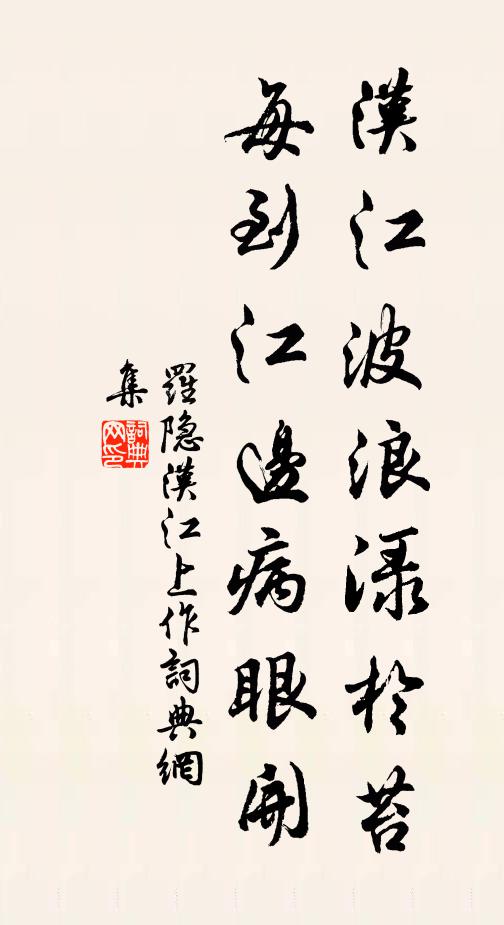 漢江波浪渌於苔
每到江邊病眼開
羅隐漢江上作詞典網
集
詞典網印